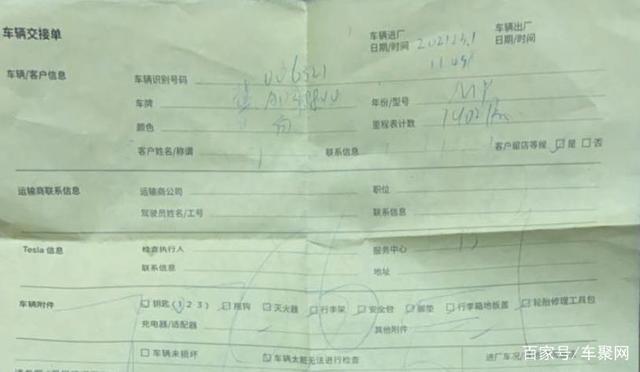 车辆交接单
车辆进厂 日期/时间 2021.3.1 车辆出厂 日期/时间
11:49
车辆/客户信息 车辆识别号码 006521
车牌 年份/型号 MY
颜色 白 里程表计数
客户姓名/称谓 联系信息 客户留店等候 是 否
运输商联系信息 运输商公司 职位
驾驶员姓名/工号 联系信息
Tesla 信息 检查执行人 服务中心
联系信息 地址
车辆附件 钥匙 (1 2 3) 拖钩 灭火器 行李架 安全包 脚垫 行李箱地板盖 轮胎修理工具包
充电器/适配器 其他附件
车辆未损坏 车辆太脏无法进行检查 进厂车况/
百家号/车聚网